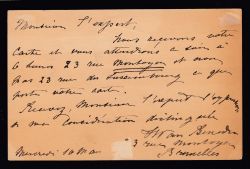 Monsieur l'expert,
Nous recevons votre
carte et vous attendons ce soir à
6 heures 23 rue Montoyer et non
pas 23 rue du Luxembourg ce que
porte votre carte.
Recevez, Monsieur l'expert l'
de ma considération distinguée
Van Beneden
23 rue Montoyer
Mercredi 10 Mai Bruxelles